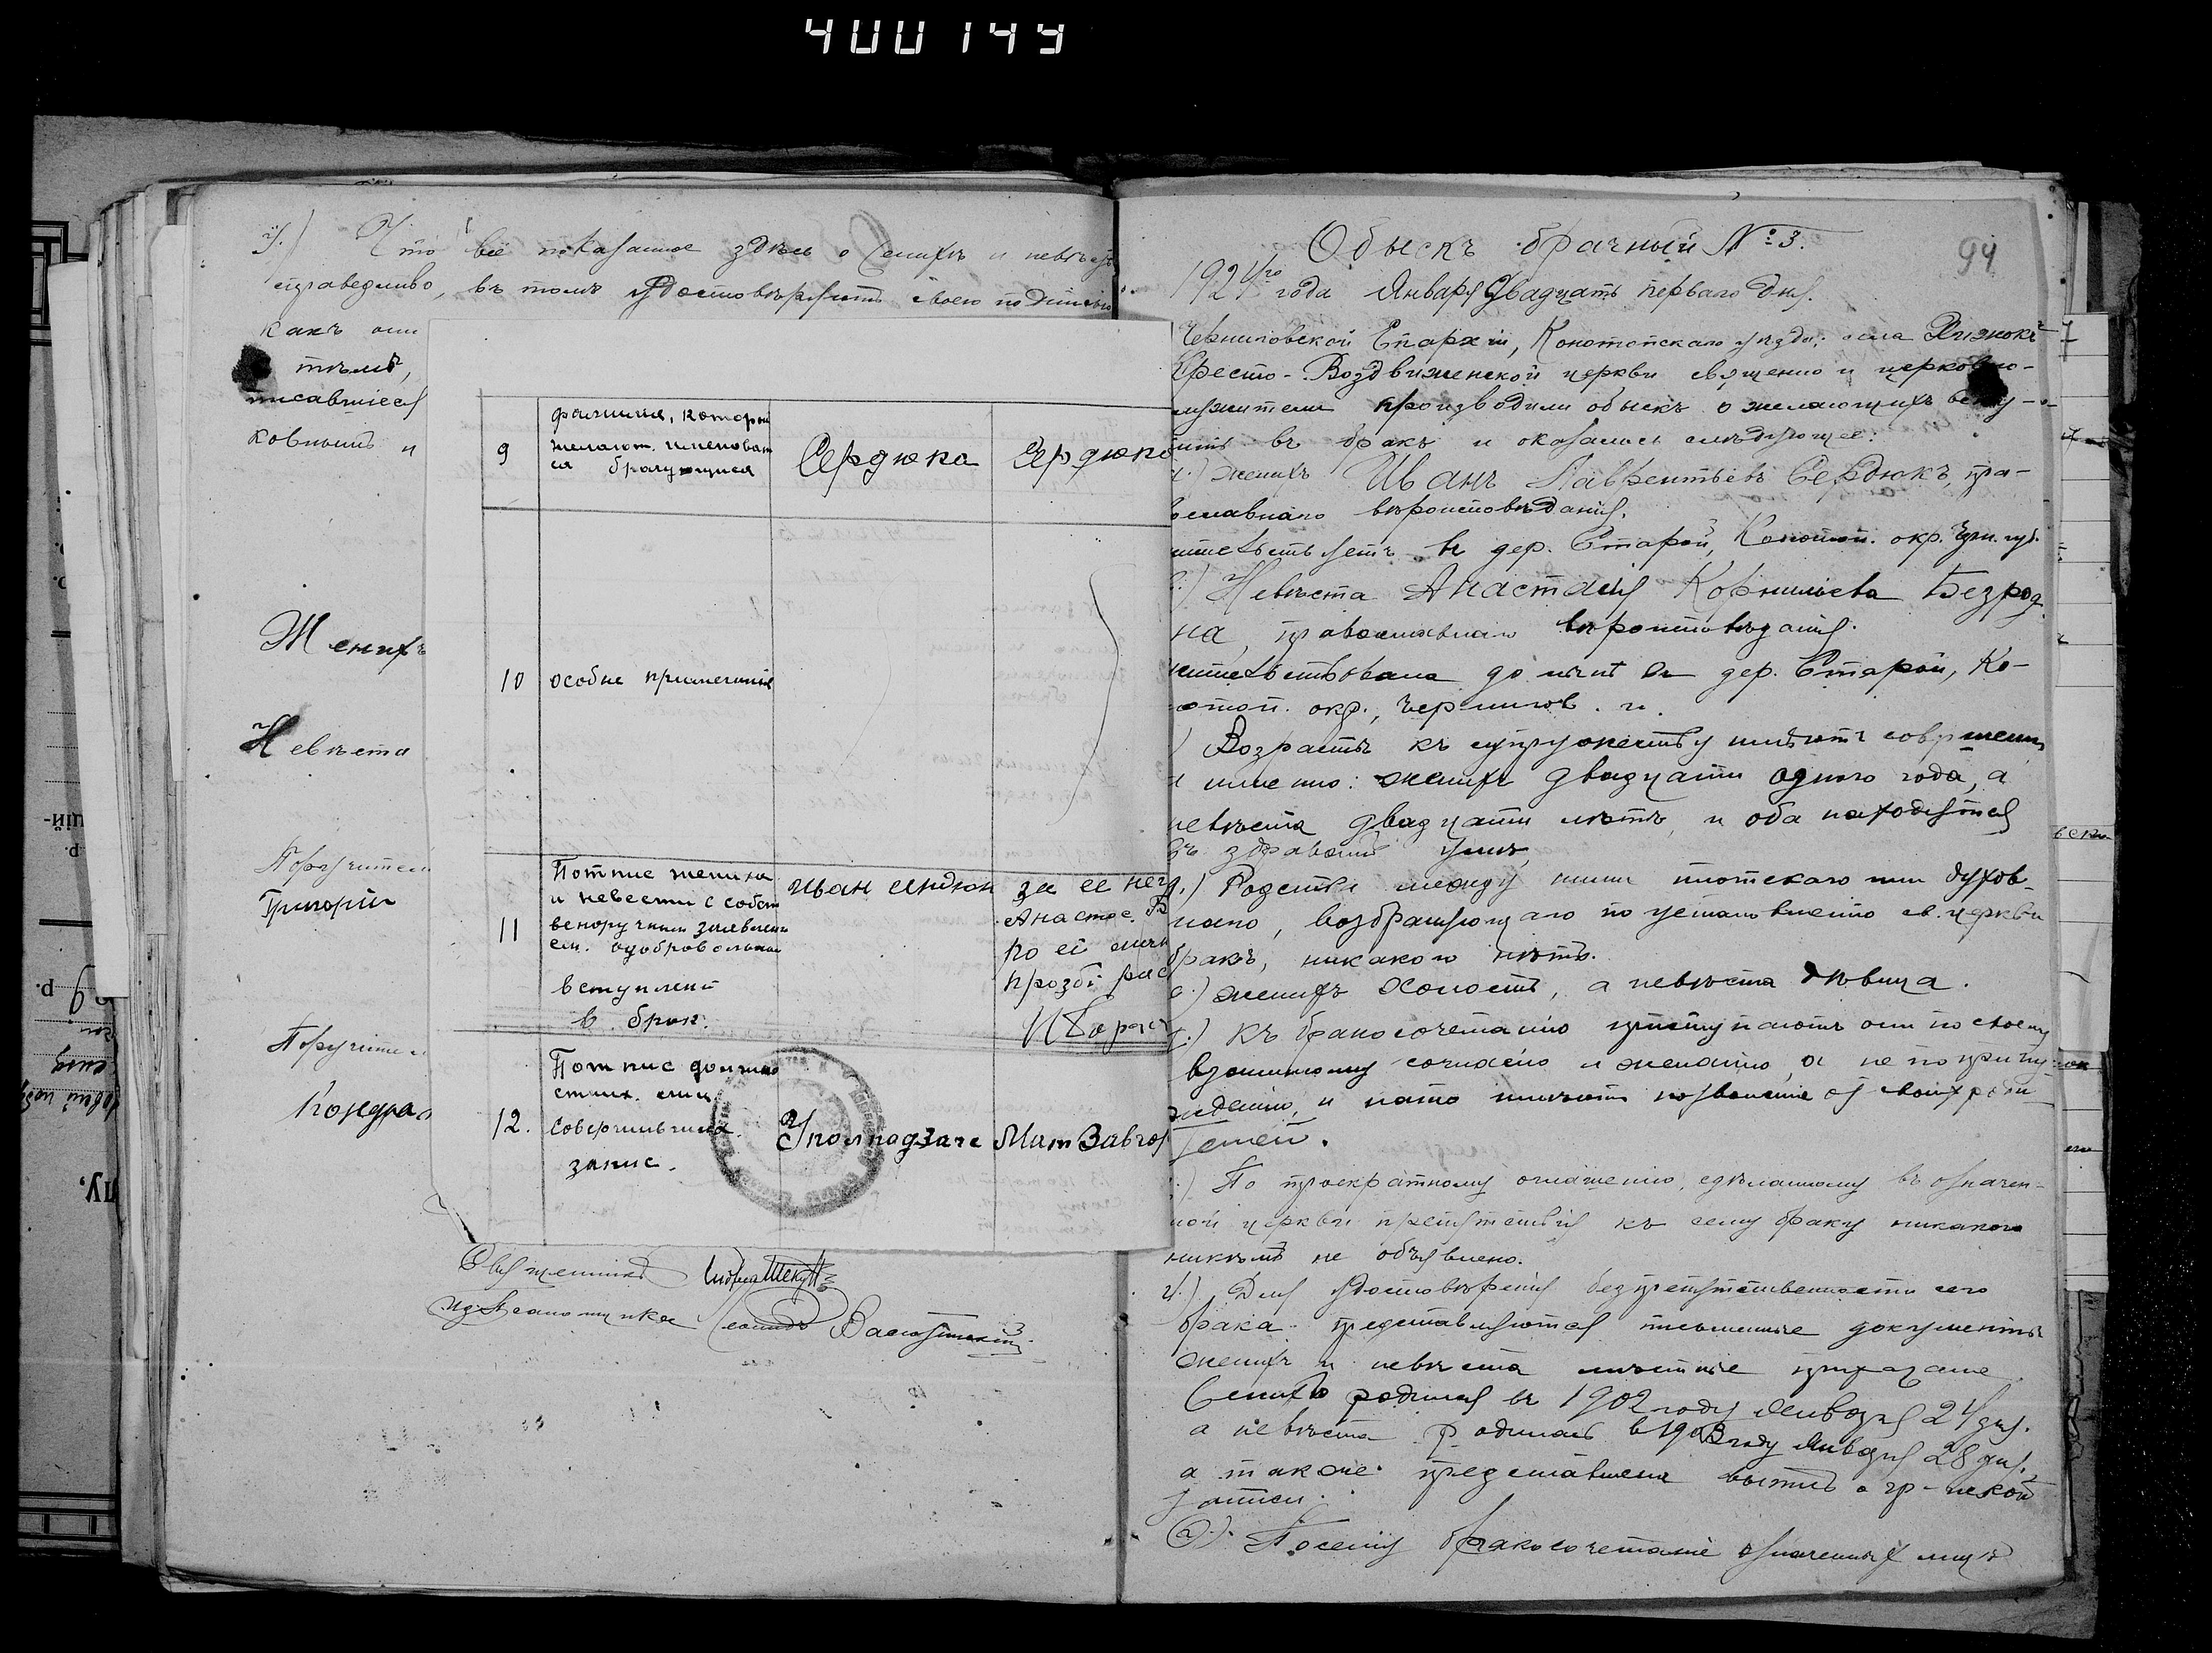 400149
у.) Что всё показанное здѣсь о женихѣ и невѣстѣ
справедливо, въ томъ удостовѣряютъ своею подписью
какъ они
тѣмъ,
писавшіеся
ковными и
Женихъ
Невѣста
Поручители
Григорій
Поручители
Кондра
9
фамилия, которой
желают именоват
ся брачущиеся
Сердюка
Сердюко
10
особые примечания
11
Потпис жениха
и невесты с собст
веноручным заявлени
ем о добровольном
вступлени
в брак.
Иван
за ее нег
Анастас. Б
по её личн
прозбі рас
12.
Потпис должно
стных лиц
совершивших
запис.
Уполподзаге МатЗавго
Священникъ
Псаломщика
94
Обыскъ брачный № 3.
1924го года Января двадцать перваго дня.
Черниговской Епархіи, Конотопскаго уѣзда, села Хижокъ
Кресто-Воздвиженской церкви священно и церковно-
служители производили обыскъ о желающихъ всту-
пить въ бракъ и оказалось слѣдующее:
женихъ Иванъ Лаврентьевъ Сердюкъ, пра-
вославнаго вѣроисповѣданія.
жительствуетъ въ дер. Старой, Конотоп. окр. Чрн. гу.
Невѣста Анастасія Корнильева Безрод
на, православнаго вѣроисповѣданія.
жительствовала до нынѣ въ дер. Старой, Ко-
нотоп. окр., Чернигов. г.
Возрастъ къ супружеству имѣютъ совершенный
именно: женихъ двадцати одного года, а
невѣста двадцати лѣтъ, и оба находятся
въ здравомъ умѣ,
д.) Родства между ними плотскаго или духов-
наго, возбраняющаго по установленію св. церкви
бракъ, никакого нѣтъ.
е.) женихъ холостъ, а невѣста дѣвица.
къ бракосочетанію приступаютъ они по своему
взаимному согласію и желанію, а не по прину-
жденію, и на то имѣютъ позволеніе от своихъ роди-
телей.
По троекратному оглашенію, сдѣланному въ означен-
ной церкви препятствія къ сему браку никакого
никѣмъ не объявлено.
и.) Для удостовѣренія безпрепятственности сего
брака представляются письменные документы
женихъ и невѣста мѣстные прихожане
Женихъ родился въ 1902 году Января 24 дня.
а невѣста родилась в 1903 году Января 28 дня.
а также представлена выпись о гр-нской
записи.
Посему бракосочетаніе означенныхъ лицъ